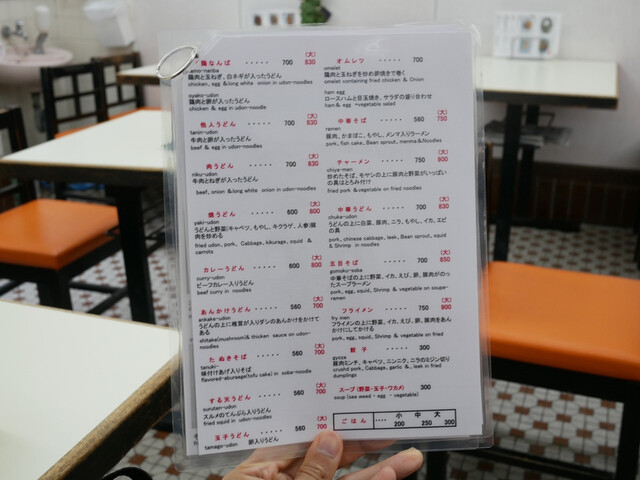 鶏なんば ・・・・・ 700 (大) 830
amo-nanba
鶏肉と玉ねぎ、白ネギが入ったうどん
chicken, egg &long white onion in udon-noodles
oyako-udon
鶏肉と卵が入ったうどん
chicken & egg in udon-noodles
他人うどん ・・・・ 700 (大) 830
tanin-udon
牛肉と卵が入ったうどん
beef & egg in udon-noodles
肉うどん ・・・・・ 700 (大) 830
niku-udon
牛肉とねぎが入ったうどん
beef, onion &long white onion in udon-noodles
焼うどん ・・・・ 600 (大) 800
yaki-udon
うどんと野菜(キャベツ、もやし、キクラゲ、人参)豚肉を炒める
fried udon, pork, Cabbage, kikurage, squid & carrots
カレーうどん ・・・・ 600 (大) 800
curry-udon
ビーフカレー入りうどん
beef curry in noodles
あんかけうどん ・・・・ 560 (大) 700
ankake-udon
うどんの上に椎茸が入りダシのあんかけをかけてある
shiitake(mushroom)& thicken sauce on udon-noodles
たぬきそば ・・・・ 560 (大) 700
tanuki-
味付けあげ入りそば
flavored-aburaage(tofu cake) in soba-noodle
する天うどん ・・・・ 560 (大) 700
suruten-udon
スルメのてんぷら入りうどん
fried squid in udon-noodles
玉子うどん ・・・・ 560 (大) 700
tamago-udon 卵入りうどん
オムレツ ・・・・・ 700
omelet
鶏肉と玉ねぎを炒め卵焼きで巻く
omelet containing fried chicken & Onion
ham egg
ロースハムと目玉焼き、サラダの盛り合わせ
ham & egg +vegetable salad
中華そば ・・・・・ 560 (大) 750
ramen
豚肉、かまぼこ、もやし、メンマ入りラーメン
pork, fish cake, Bean sprout, menma&Noodles
チャーメン ・・・・・ 750 (大) 900
chiya-men
炒めたそば、モヤシの上に豚肉と野菜がいっぱいの具はとろみ付け
fried pork & vegetable on fried noodles
中華うどん ・・・・・ 700 (大) 800
chuka-udon
うどんの上に白菜、豚肉、ニラ、もやし、イカ、エビの具
pork, chinese cabbage, leek, Bean sprout, squid & Shrimp in noodles
五目そば ・・・・・ 700 (大) 850
gomoku-soba
中華そばの上に野菜、イカ、えび、卵、豚肉がのったスープラーメン
pork, egg, squid, Shrimp & vegetable on soupe-ramen
フライメン ・・・・・ 750 (大) 900
fry men
フライメンの上に野菜、イカ、えび、卵、豚肉をあんかけにしてかける
pork, egg, squid, Shrimp & vegetable on fried
餃子 ・・・・・ 300
gyoza
豚肉ミンチ、キャベツ、ニンニク、ニラのミジン切り
crushd pork, Cabbage, garlic &, leek in fried dumplings
スープ(野菜・玉子・ワカメ) 300
soup (sea weed ・ egg ・ vegetable)
小 中 大
ごはん ・・・・ 200 250 300